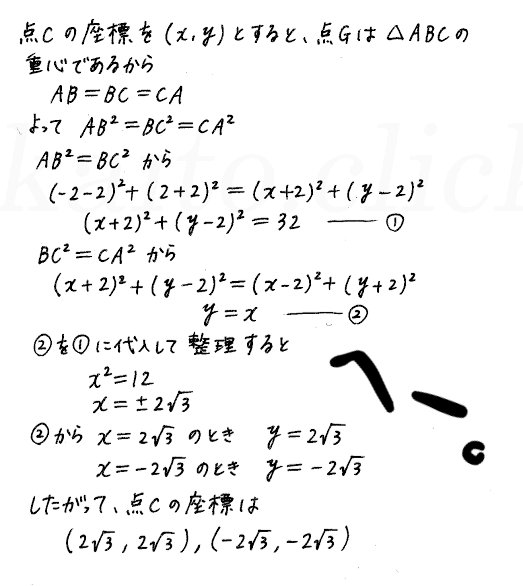 点Cの座標を(x,y)とすると、点Gは△ABCの
重心であるから
AB=BC=CA
よって AB²=BC²=CA²
AB²=BC² から
(-2-2)²+(2+2)²=(x+2)²+(y-2)²
(x+2)²+(y-2)²=32 ——①
BC²=CA² から
(x+2)²+(y-2)²=(x-2)²+(y+2)²
y=x ——②
②を①に代入して整理すると
x²=12
x=±2√3
②から x=2√3 のとき y=2√3
x=-2√3 のとき y=-2√3
したがって、点Cの座標は
(2√3, 2√3), (-2√3, -2√3)